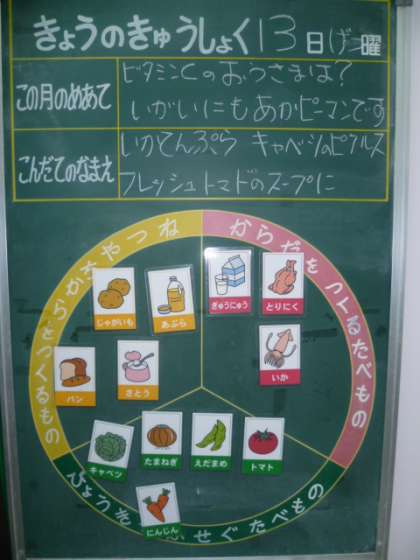 きょうのきゅうしょく 13日げつ曜
この月のめあて
ビタミンCのおうさまは?
いがいにもあかピーマンです
こんだてのなまえ
いかてんぷら キャベツのピクルス
フレッシュトマトのスープに
ねつやちからをつくるもの
からだをつくるたべもの
じゃがいも
あぶら
ぎゅうにゅう
とりにく
パン
さとう
いか
キャベツ
たまねぎ
えだまめ
トマト
にんじん
びょうきを ふせぐたべもの